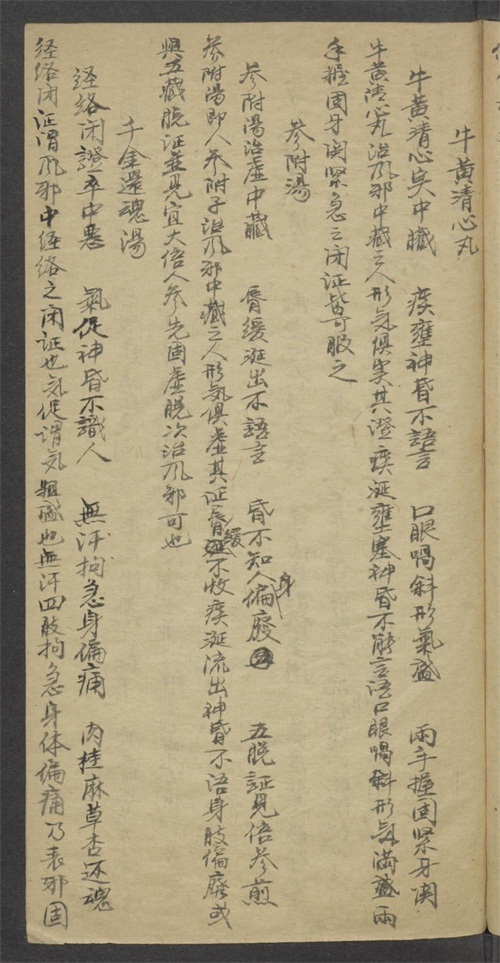 牛黄清心丸
牛黄清心实中臟　痰壅神昏不語言　口眼喎斜形氣盛　兩手握固緊牙関
牛黄清心丸治风邪中藏之人形気俱实其證痰涎壅塞神昏不能言语口眼喎斜形気满盛兩
手握固牙関緊急之闭证皆可服之
参附湯
参附湯治虚中藏　唇缓涎出不語言　昏不知人身偏廢　五脱証見倍参煎
参附湯即人参附子治风邪中藏之人形気俱虚其证唇缓不收痰涎流出神昏不语身肢偏廢或
與五藏脱证並見宜大倍人参先固虚脱次治风邪可也
千金還魂湯
经络闭證卒中悪　氣促神昏不識人　無汗拘急身偏痛　肉桂麻草杏还魂
経络闭证謂风邪中経络之闭证也気促謂気粗也無汗四肢拘急身体偏痛乃表邪固